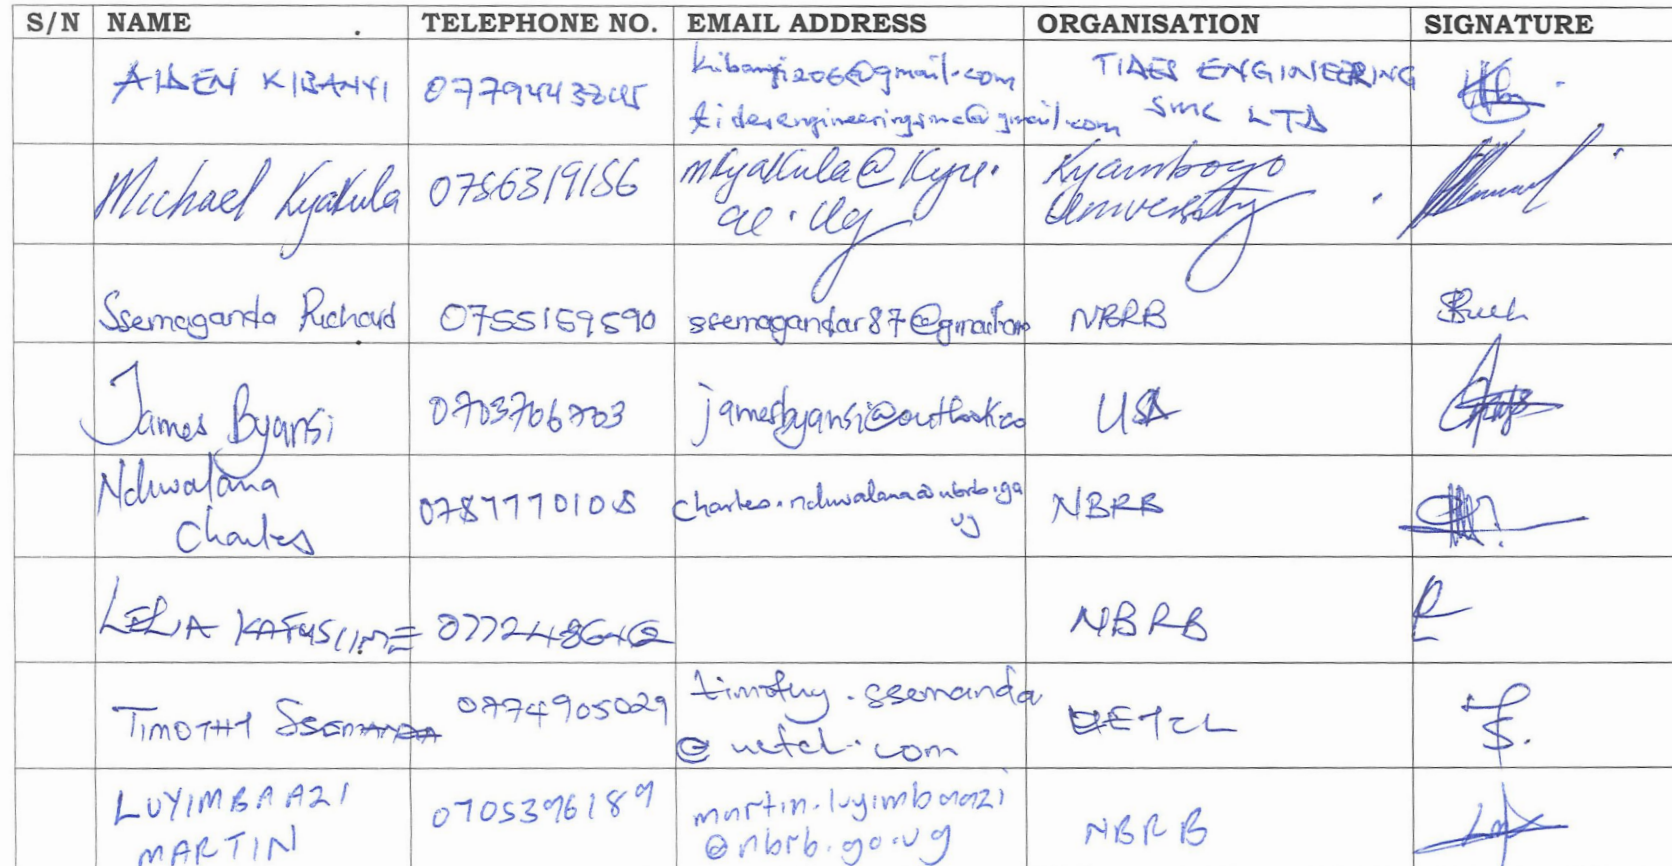 S/N NAME TELEPHONE NO. EMAIL ADDRESS ORGANISATION SIGNATURE
AIDEN KIBANYI 0779443245 kibanyi206@gmail.com TIDES ENGINEERING
tidesengineeringsmc@gmail.com SMC LTD
Michael Kyakula 0786319186 mkyakula@kyu. Kyambogo
ac.ug University
Ssemaganda Richard 0755159590 ssemagandar87@gmail.com NBRB
James Byansi 0703706703 jamesbyansi@outlook.co
Nduwalana 0787770108 charles.nduwalana@nbrb.go NBRB
Charles ug
LELIA KATUSIIME NBRB
TIMOTHY SSEMANDA 0774905029 timothy.ssemanda UETCL
@uetcl.com
LUYIMBAAZI 0705396189 martin.luyimbaazi NBRB
MARTIN @nbrb.go.ug